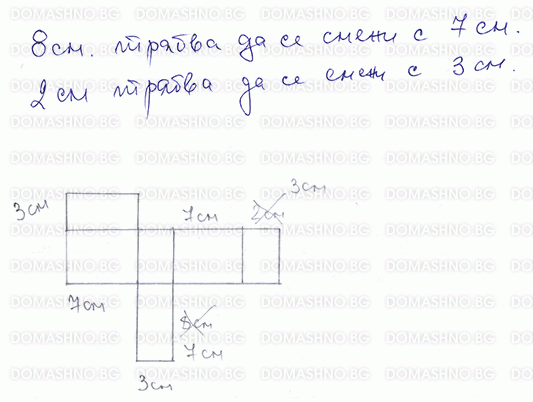 8 см. трябва да се смени с 7 см.
2 см трябва да се смени с 3 см.
3 см
3 см
7 см
2 см
7 см
8 см
7 см
3 см
DOMASHNO.BG